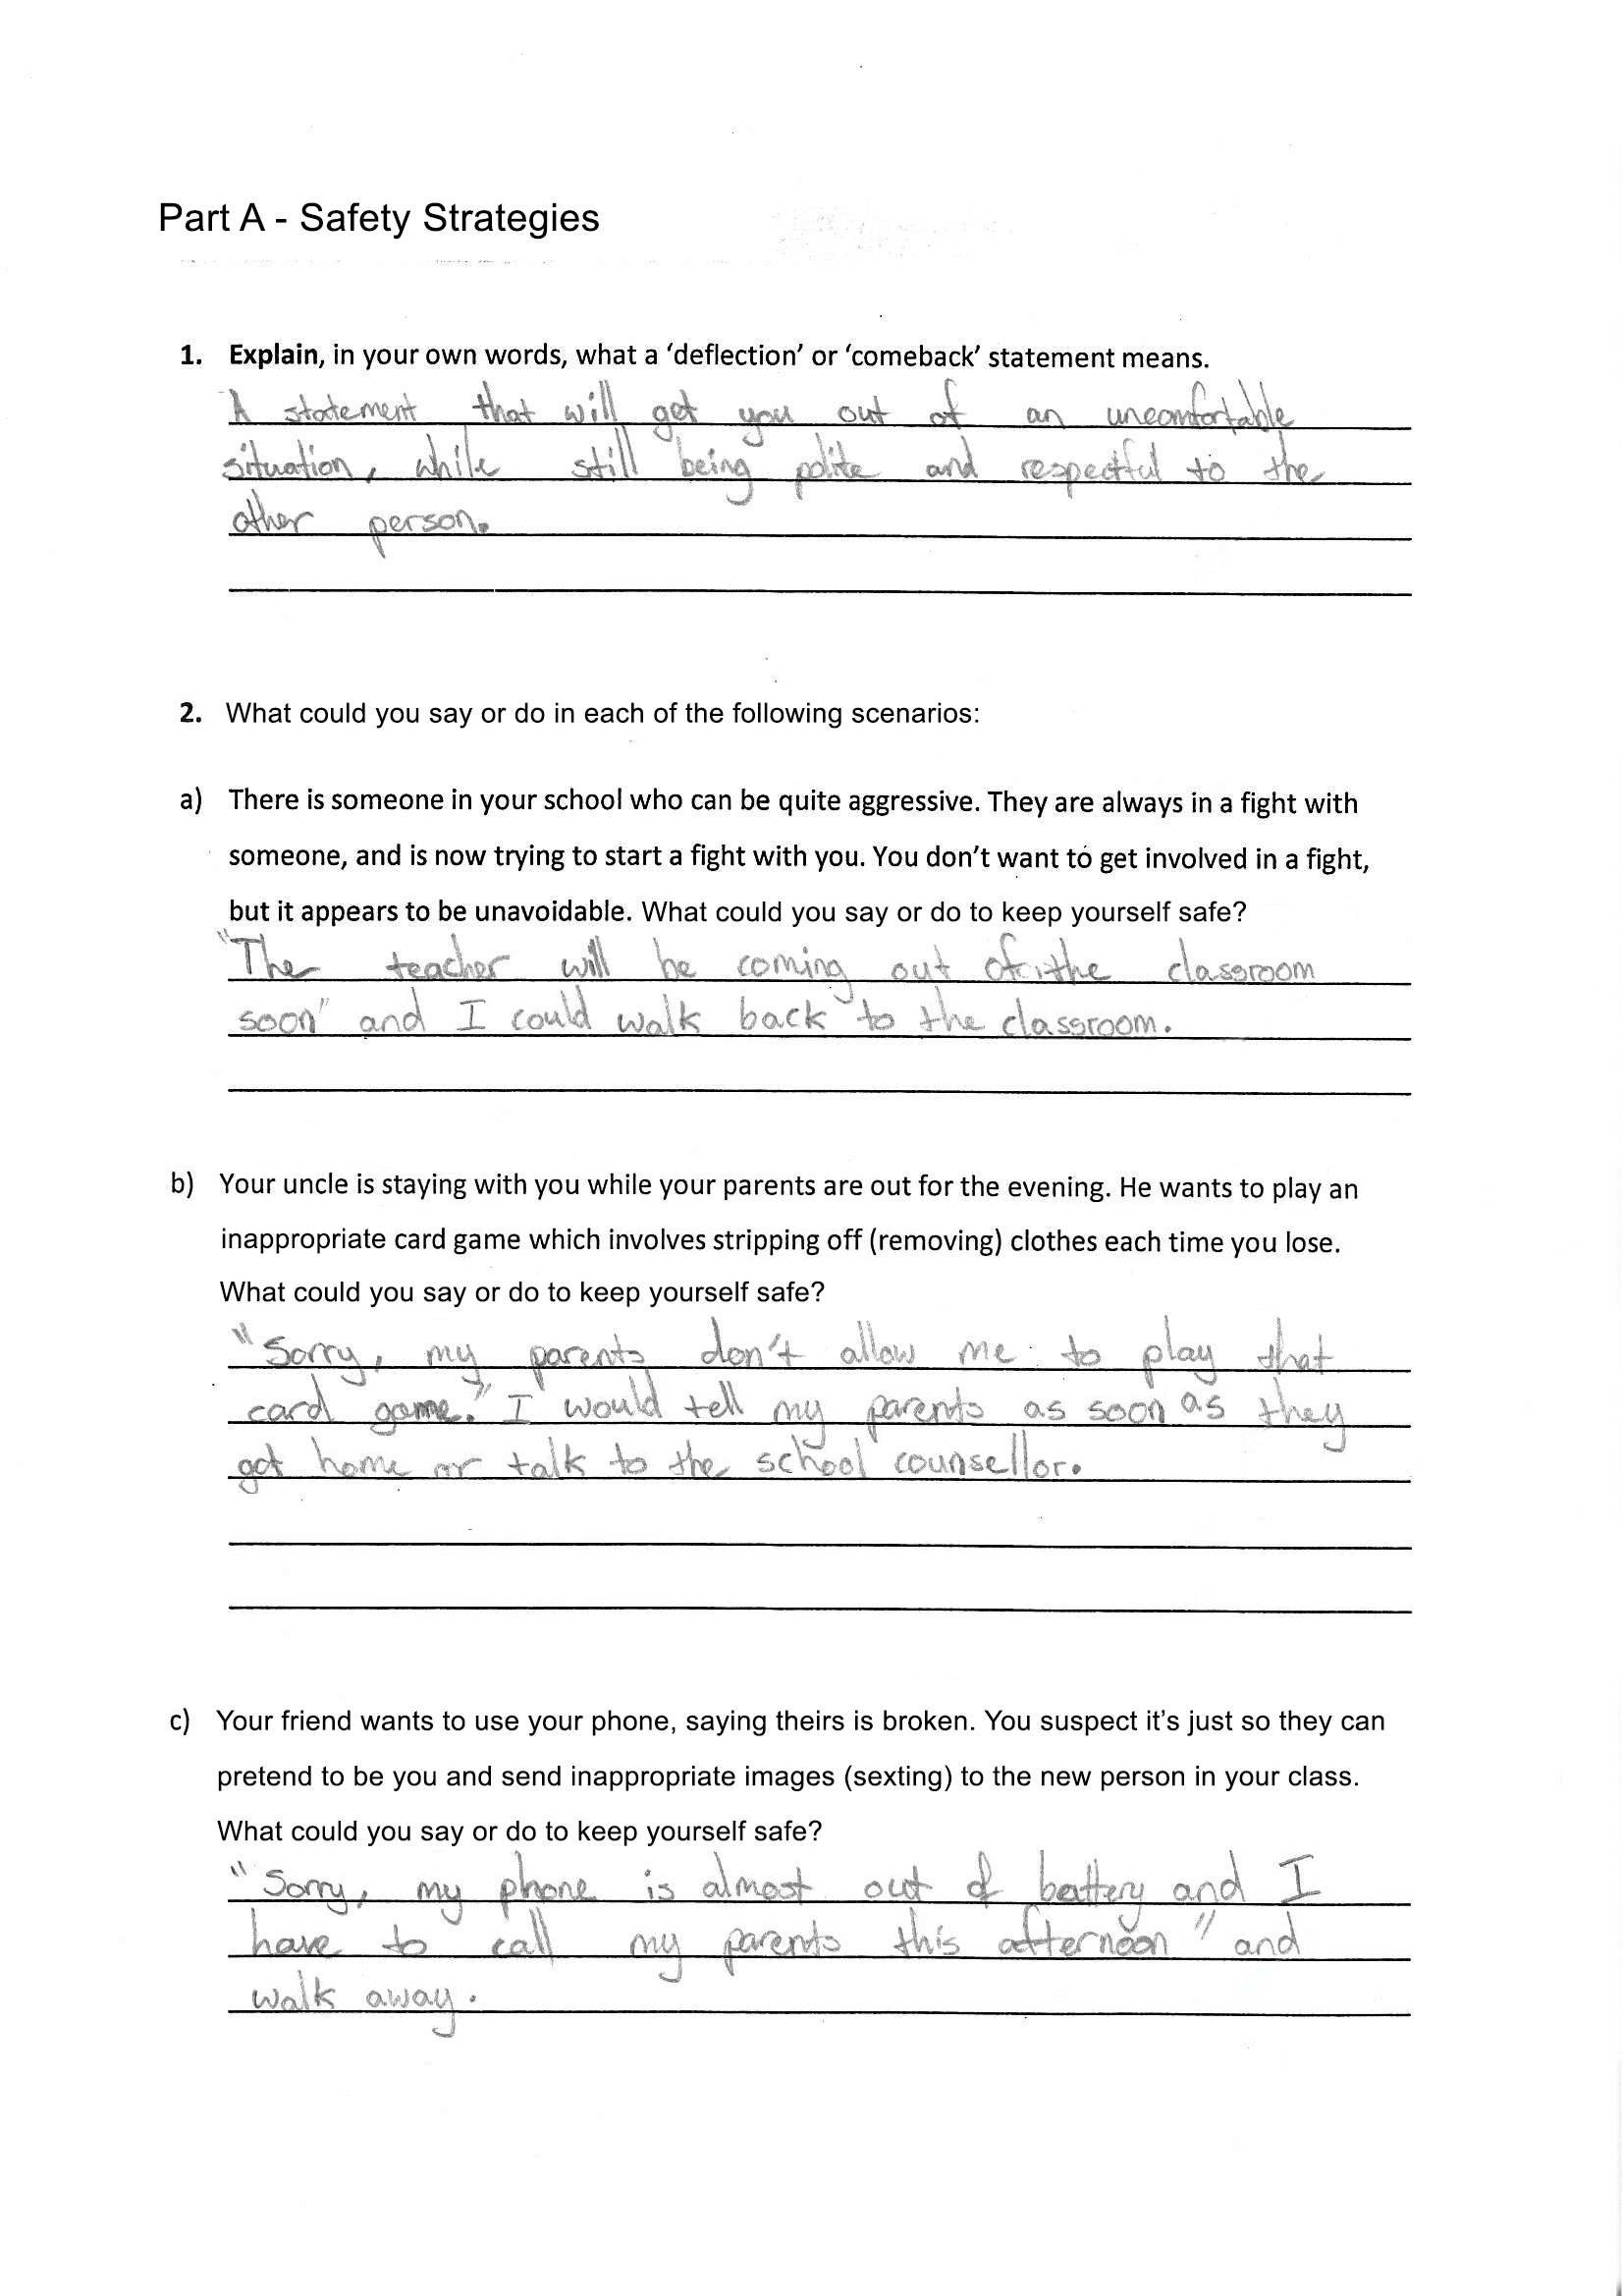 Part A - Safety Strategies
1. Explain, in your own words, what a ‘deflection’ or ‘comeback’ statement means.
A statement that will get you out of an uncomfortable
situation, while still being polite and respectful to the
other person.
2. What could you say or do in each of the following scenarios:
a) There is someone in your school who can be quite aggressive. They are always in a fight with
someone, and is now trying to start a fight with you. You don’t want to get involved in a fight,
but it appears to be unavoidable. What could you say or do to keep yourself safe?
"The teacher will be coming out of the classroom
soon" and I could walk back to the classroom.
b) Your uncle is staying with you while your parents are out for the evening. He wants to play an
inappropriate card game which involves stripping off (removing) clothes each time you lose.
What could you say or do to keep yourself safe?
"Sorry, my parents don't allow me to play that
card game." I would tell my parents as soon as they
got home or talk to the school counsellor.
c) Your friend wants to use your phone, saying theirs is broken. You suspect it’s just so they can
pretend to be you and send inappropriate images (sexting) to the new person in your class.
What could you say or do to keep yourself safe?
"Sorry, my phone is almost out of battery and I
have to call my parents this afternoon" and
walk away.